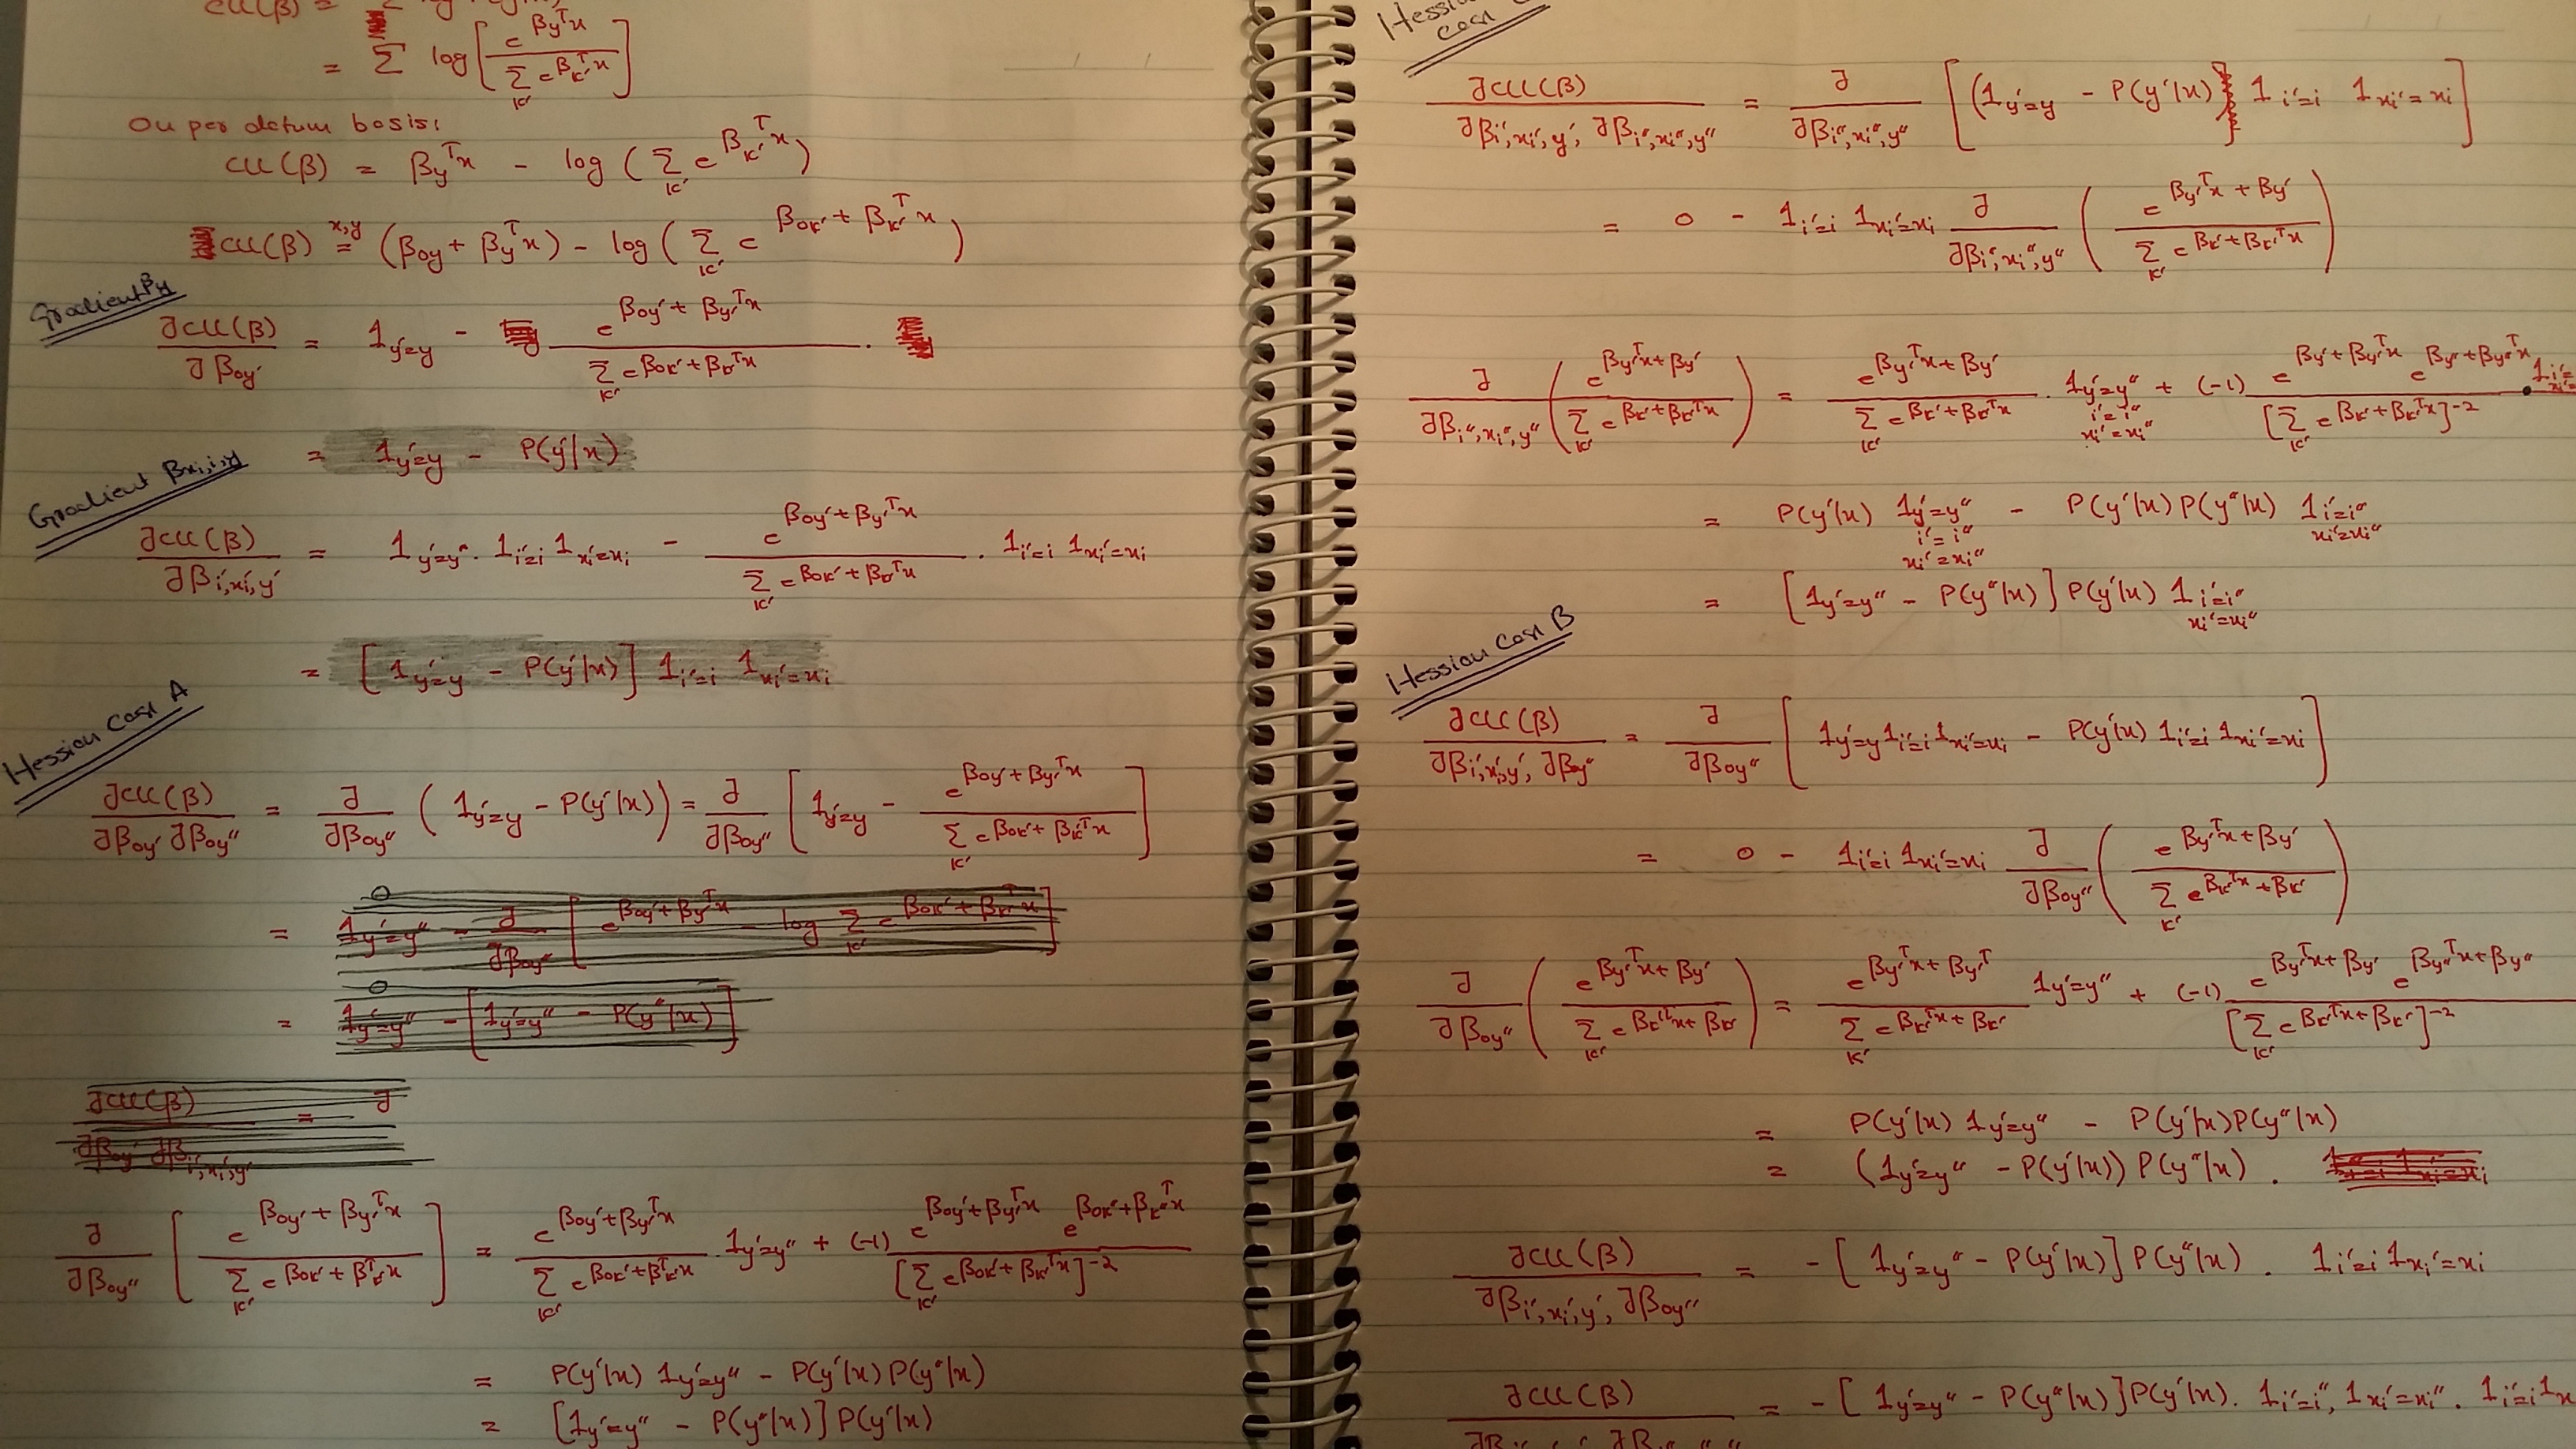 CLL(β) = Σ log
= Σ log [ e^{β_y^T x} / Σ_{k'} e^{β_{k'}^T x} ]
On per datum basis:
CLL(β) = β_y^T x - log ( Σ_{k'} e^{β_{k'}^T x} )
CLL(β) =^{x,y} (β_{0y} + β_y^T x) - log ( Σ_{k'} e^{β_{0k'} + β_{k'}^T x} )
Gradient β_y
∂CLL(β) / ∂β_{0y'} = 1_{y'=y} - e^{β_{0y'} + β_{y'}^T x} / Σ_{k'} e^{β_{0k'} + β_{k'}^T x} .
= 1_{y'=y} - P(y'|x)
Gradient β_{xi,i,y}
∂CLL(β) / ∂β_{i',xi',y'} = 1_{y'=y''} . 1_{i'=i} 1_{xi'=xi} - e^{β_{0y'} + β_{y'}^T x} / Σ_{k'} e^{β_{0k'} + β_{k'}^T x} . 1_{i'=i} 1_{xi'=xi}
= [ 1_{y'=y} - P(y'|x) ] 1_{i'=i} 1_{xi'=xi}
Hession Case A
∂CLL(β) / ∂β_{0y'} ∂β_{0y''} = ∂ / ∂β_{0y''} ( 1_{y'=y} - P(y'|x) ) = ∂ / ∂β_{0y''} [ 1_{y'=y} - e^{β_{0y'} + β_{y'}^T x} / Σ_{k'} e^{β_{0k'} + β_{k'}^T x} ]
= 0 1_{y'=y''} - ∂ / ∂β_{0y''} [ e^{β_{0y'} + β_{y'}^T x} - log Σ_{k'} e^{β_{0k'} + β_{k'}^T x} ]
= 0 1_{y'=y''} - [ 1_{y'=y''} - P(y''|x) ]
∂CLL(β) / ∂β_{0y'} ∂β_{i',xi',y'} = ∂
∂ / ∂β_{0y''} [ e^{β_{0y'} + β_{y'}^T x} / Σ_{k'} e^{β_{0k'} + β_{k'}^T x} ] = e^{β_{0y'} + β_{y'}^T x} / Σ_{k'} e^{β_{0k'} + β_{k'}^T x} . 1_{y'=y''} + (-1) e^{β_{0y'} + β_{y'}^T x} e^{β_{0k''} + β_{k''}^T x} / [ Σ_{k'} e^{β_{0k'} + β_{k'}^T x} ]^{-2}
= P(y'|x) 1_{y'=y''} - P(y'|x) P(y''|x)
= [ 1_{y'=y''} - P(y''|x) ] P(y'|x)
Hession Case
∂CLL(β) / ∂β_{i',xi',y'}, ∂β_{i'',xi'',y''} = ∂ / ∂β_{i'',xi'',y''} [ (1_{y'=y} - P(y'|x) 1_{i'=i} 1_{xi'=xi} ]
= 0 - 1_{i'=i} 1_{xi'=xi} ∂ / ∂β_{i'',xi'',y''} ( e^{β_{y'}^T x + β_{y'}} / Σ_{k'} e^{β_{k'} + β_{k'}^T x} )
∂ / ∂β_{i'',xi'',y''} ( e^{β_{y'}^T x + β_{y'}} / Σ_{k'} e^{β_{k'} + β_{k'}^T x} ) = e^{β_{y'}^T x + β_{y'}} / Σ_{k'} e^{β_{k'} + β_{k'}^T x} . 1_{y'=y'' i'=i'' xi'=xi''} + (-1) e^{β_{y'} + β_{y'}^T x} e^{β_{y''} + β_{y''}^T x} / [ Σ_{k'} e^{β_{k'} + β_{k'}^T x} ]^{-2} . 1_{i'= xi'=
= P(y'|x) 1_{y'=y'' i'=i'' xi'=xi''} - P(y'|x) P(y''|x) 1_{i'=i'' xi'=xi''}
= [ 1_{y'=y''} - P(y''|x) ] P(y'|x) 1_{i'=i'' xi'=xi''}
Hession Case B
∂CLL(β) / ∂β_{i',xi',y'}, ∂β_{0y''} = ∂ / ∂β_{0y''} [ 1_{y'=y} 1_{i'=i} 1_{xi'=xi} - P(y'|x) 1_{i'=i} 1_{xi'=xi} ]
= 0 - 1_{i'=i} 1_{xi'=xi} ∂ / ∂β_{0y''} ( e^{β_{y'}^T x + β_{y'}} / Σ_{k'} e^{β_{k'}^T x + β_{k'}} )
∂ / ∂β_{0y''} ( e^{β_{y'}^T x + β_{y'}} / Σ_{k'} e^{β_{k'}^T x + β_{k'}} ) = e^{β_{y'}^T x + β_{y'}^T} / Σ_{k'} e^{β_{k'}^T x + β_{k'}} 1_{y'=y''} + (-1) e^{β_{y'}^T x + β_{y'}} e^{β_{y''}^T x + β_{y''}} / [ Σ_{k'} e^{β_{k'}^T x + β_{k'}} ]^{-2}
= P(y'|x) 1_{y'=y''} - P(y'|x) P(y''|x)
= (1_{y'=y''} - P(y'|x)) P(y''|x) . 1_{i'=i} 1_{xi'=xi}
∂CLL(β) / ∂β_{i',xi',y'}, ∂β_{0y''} = - [ 1_{y'=y''} - P(y'|x) ] P(y''|x) . 1_{i'=i} 1_{xi'=xi}
∂CLL(β) = - [ 1_{y'=y''} - P(y''|x) ] P(y'|x) . 1_{i'=i''}, 1_{xi'=xi''} . 1_{i'=i} 1_x